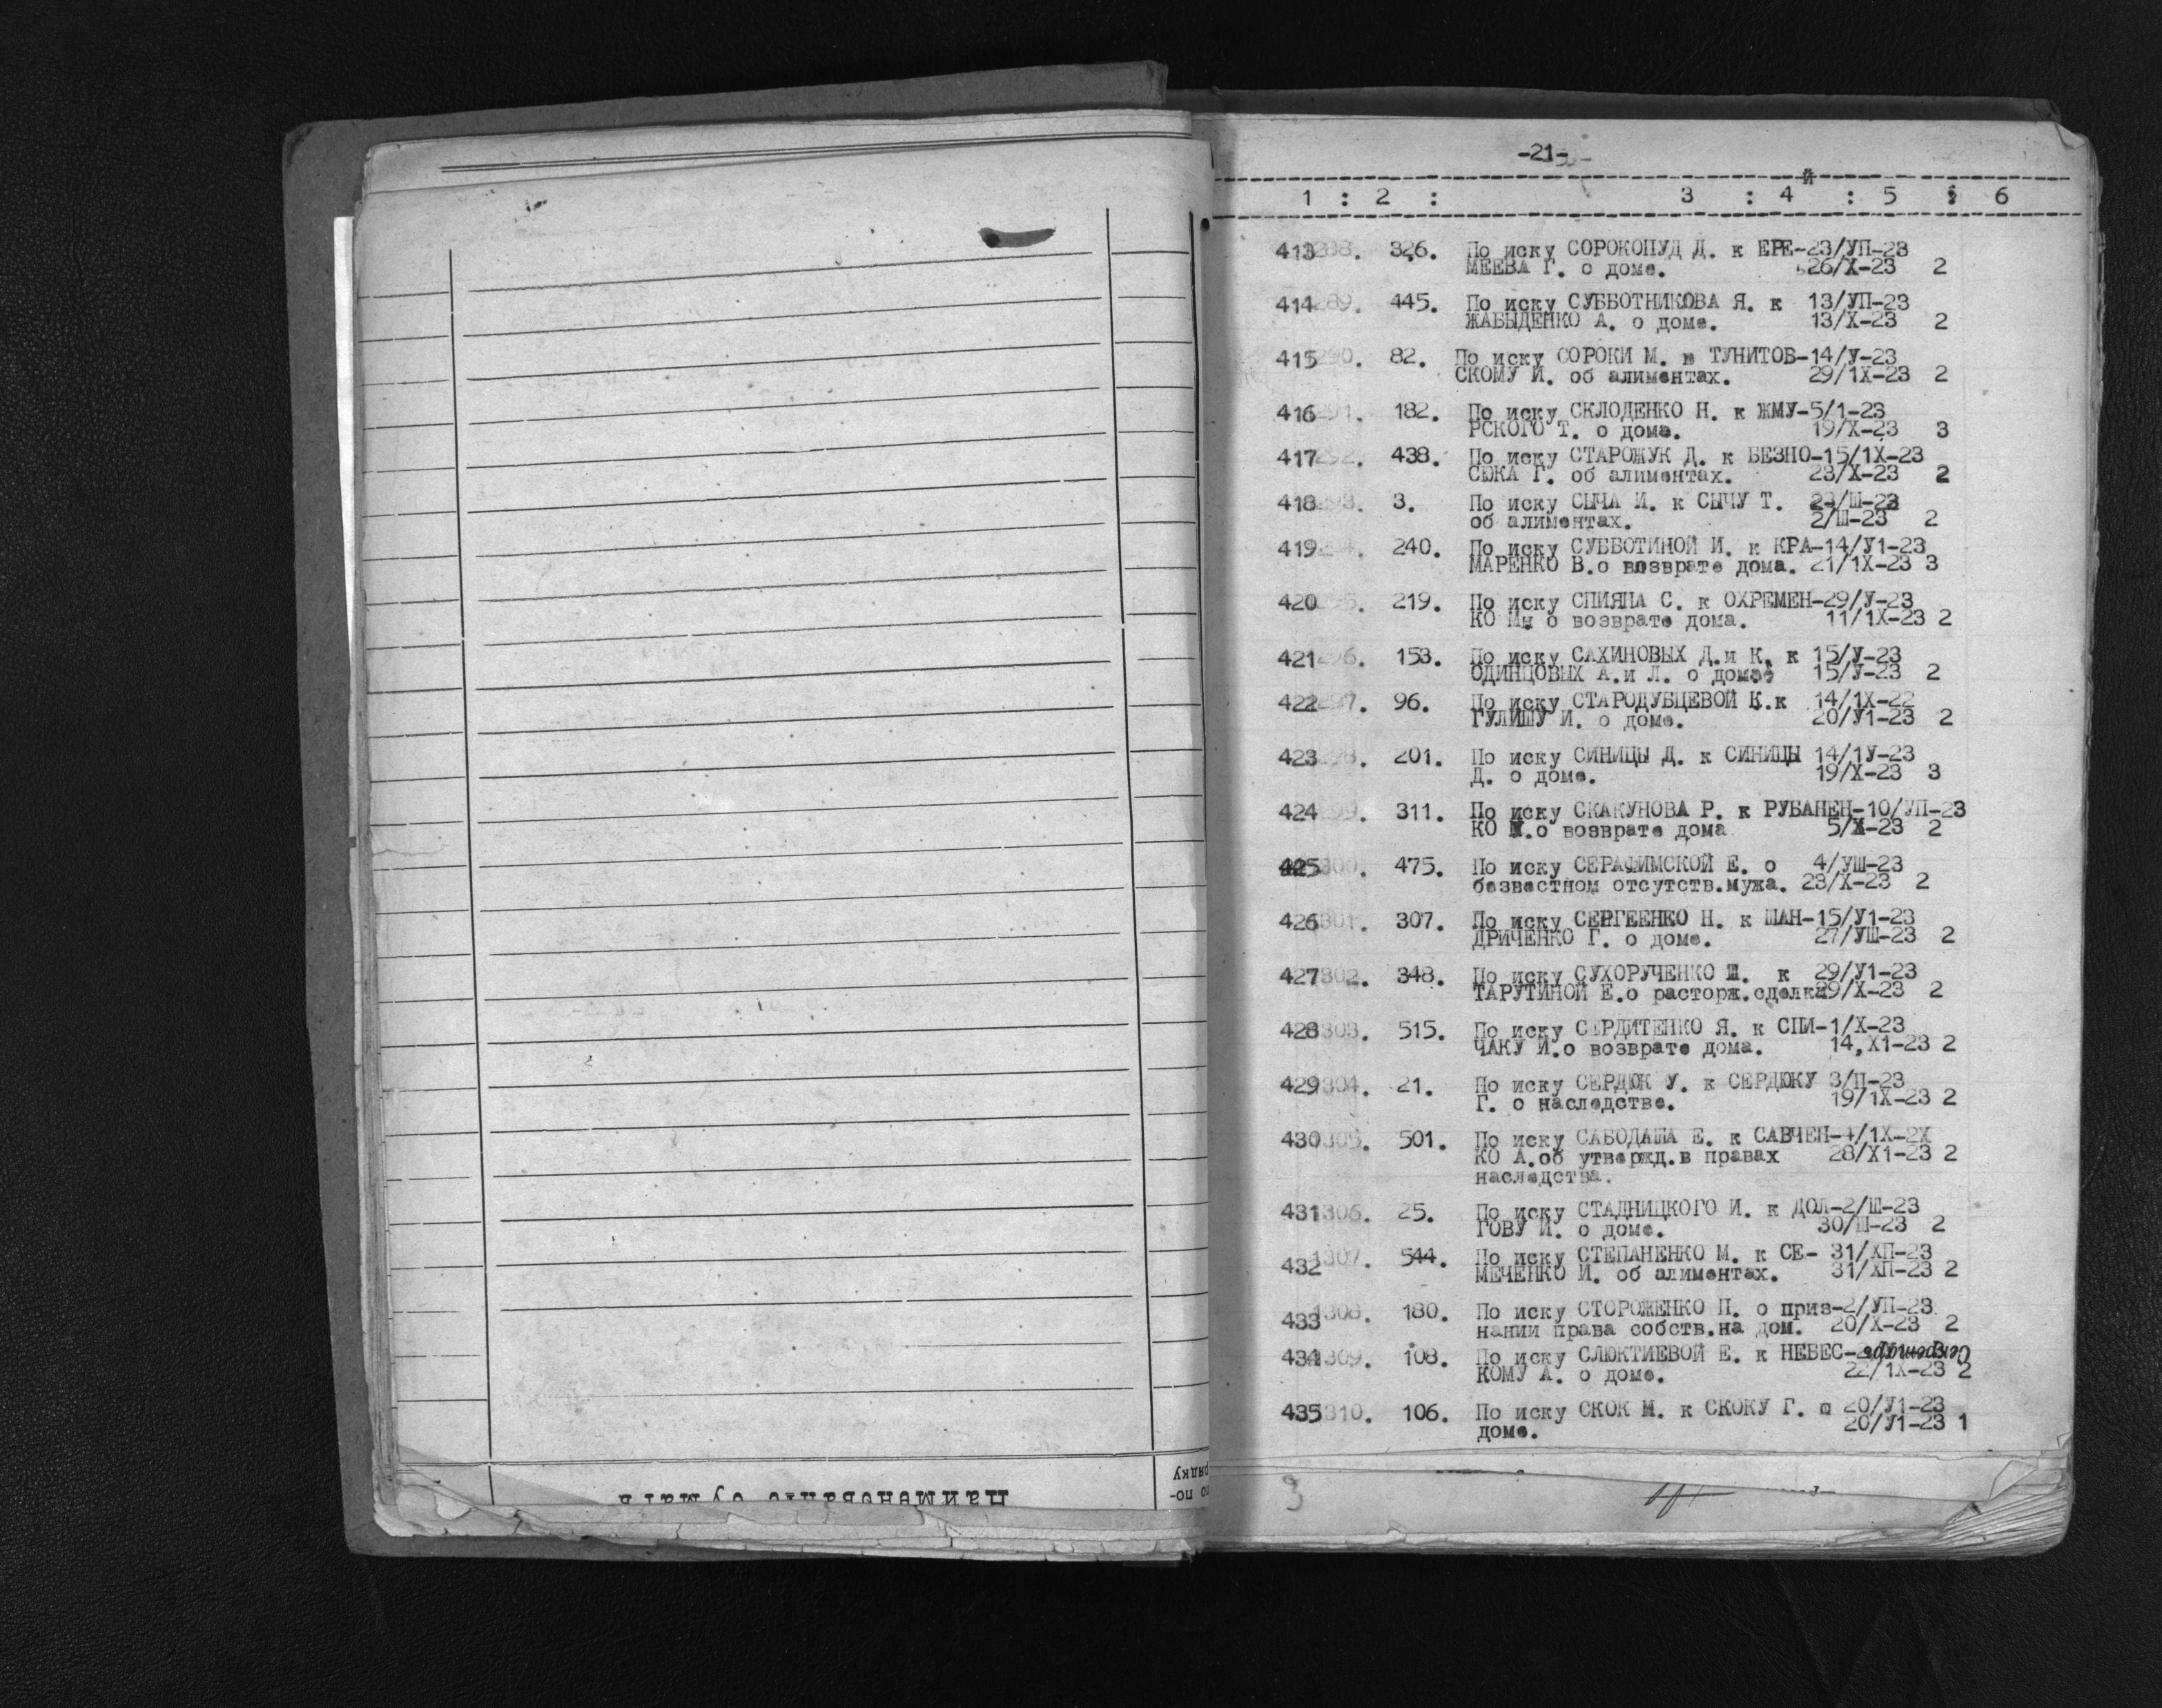 -21-
1 : 2 : 3 : 4 : 5 : 6
413 326. По иску СОРОКОПУД Д. к ЕРЕ-23/УП-23
МЕЕВА Г. о доме. 26/Х-23 2
414 445. По иску СУББОТНИКОВА Я. к 13/УП-23
ЖАБЫДЕНКО А. о доме. 13/Х-23 2
415 82. По иску СОРОКИ М. к ТУНИТОВ-14/У-23
СКОМУ И. об алиментах. 29/1Х-23 2
416 182. По иску СКЛОДЕНКО Н. к ЖМУ-5/1-23
РСКОГО Т. о доме. 19/Х-23 3
417 438. По иску СТАРОЖУК Д. к БЕЗНО-15/1Х-23
СЮКА Г. об алиментах. 23/Х-23 2
418 3. По иску СЫЧА И. к СЫЧУ Т. 23/Ш-23
об алиментах. 2/Ш-23 2
419 240. По иску СУББОТИНОЙ И. к КРА-14/У1-23
МАРЕНКО В.о возврате дома. 21/1Х-23 3
420 219. По иску СПИЯПА С. к ОХРЕМЕН-29/У-23
КО о возврате дома. 11/1Х-23 2
421 153. По иску САХИНОВЫХ Д.и К. к 15/У-23
ОДИНЦОВЫХ А.и Л. о доме 15/У-23 2
422 96. По иску СТАРОДУБЦЕВОЙ К.к 14/1Х-22
ГУЛИШУ И. о доме. 20/У1-23 2
423 201. По иску СИНИЦЫ Д. к СИНИЦЫ 14/1У-23
Д. о доме. 19/Х-23 3
424 299. 311. По иску СКАКУНОВА Р. к РУБАНЕН-10/УП-23
КО М.о возврате дома 5/Х-23 2
425 300. 475. По иску СЕРАФИМСКОЙ Е. о 4/УШ-23
безвестном отсутств.мужа. 23/Х-23 2
426 301. 307. По иску СЕРГЕЕНКО Н. к ШАН-15/У1-23
ДРИЧЕНКО Г. о доме. 27/УШ-23 2
427 302. 348. По иску СУХОРУЧЕНКО Ш. к 29/У1-23
ТАРУТИНОЙ Е.о расторж.сделки 29/Х-23 2
428 303. 515. По иску СЕРДИТЕНКО Я. к СПИ-1/Х-23
ЧАКУ И.о возврате дома. 14,Х1-23 2
429 304. 21. По иску СЕРДЮК У. к СЕРДЮКУ 3/П-23
Г. о наследстве. 19/1Х-23 2
430 305. 501. По иску САБОДАША Е. к САВЧЕН-4/1Х-2Х
КО А.об утвержд.в правах 28/Х1-23 2
наследства.
431 306. 25. По иску СТАДНИЦКОГО И. к ДОЛ-2/Ш-23
ГОВУ И. о доме. 30/Ш-23 2
432 307. 544. По иску СТЕПАНЕНКО М. к СЕ- 31/ХП-23
МЕЧЕНКО И. об алиментах. 31/ХП-23 2
433 308. 180. По иску СТОРОЖЕНКО П. о приз-2/УП-23
нании права собств.на дом. 20/Х-23 2
434 309. 108. По иску СЛЮКТИЕВОЙ Е. к НЕБЕС-
КОМУ А. о доме. 22/1Х-23 2
435 310. 106. По иску СКОК М. к СКОКУ Г. о 20/У1-23
доме. 20/У1-23 1